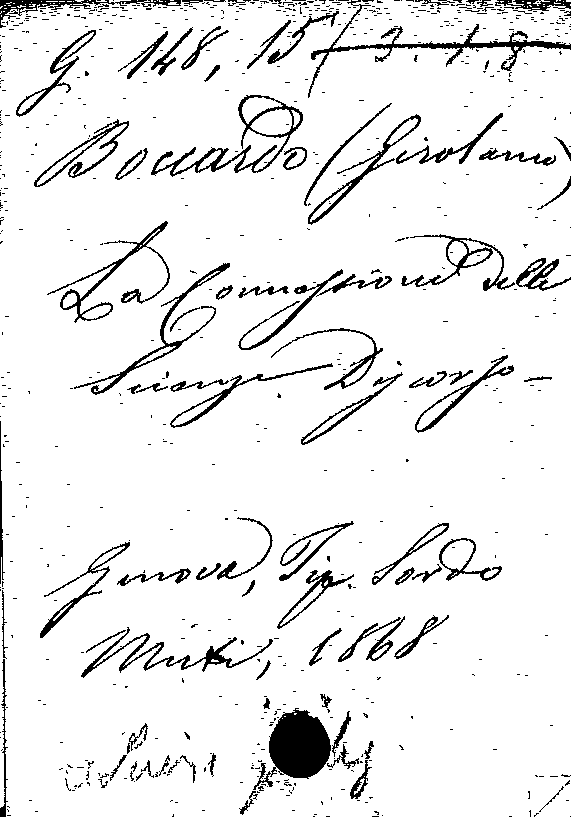 G. 148, 15 / 3. 1. 8
Boccardo (Girolamo)
La Connessione delle
Scienze. Discorso -
Genova, Tip. Sordo
Muti, 1868